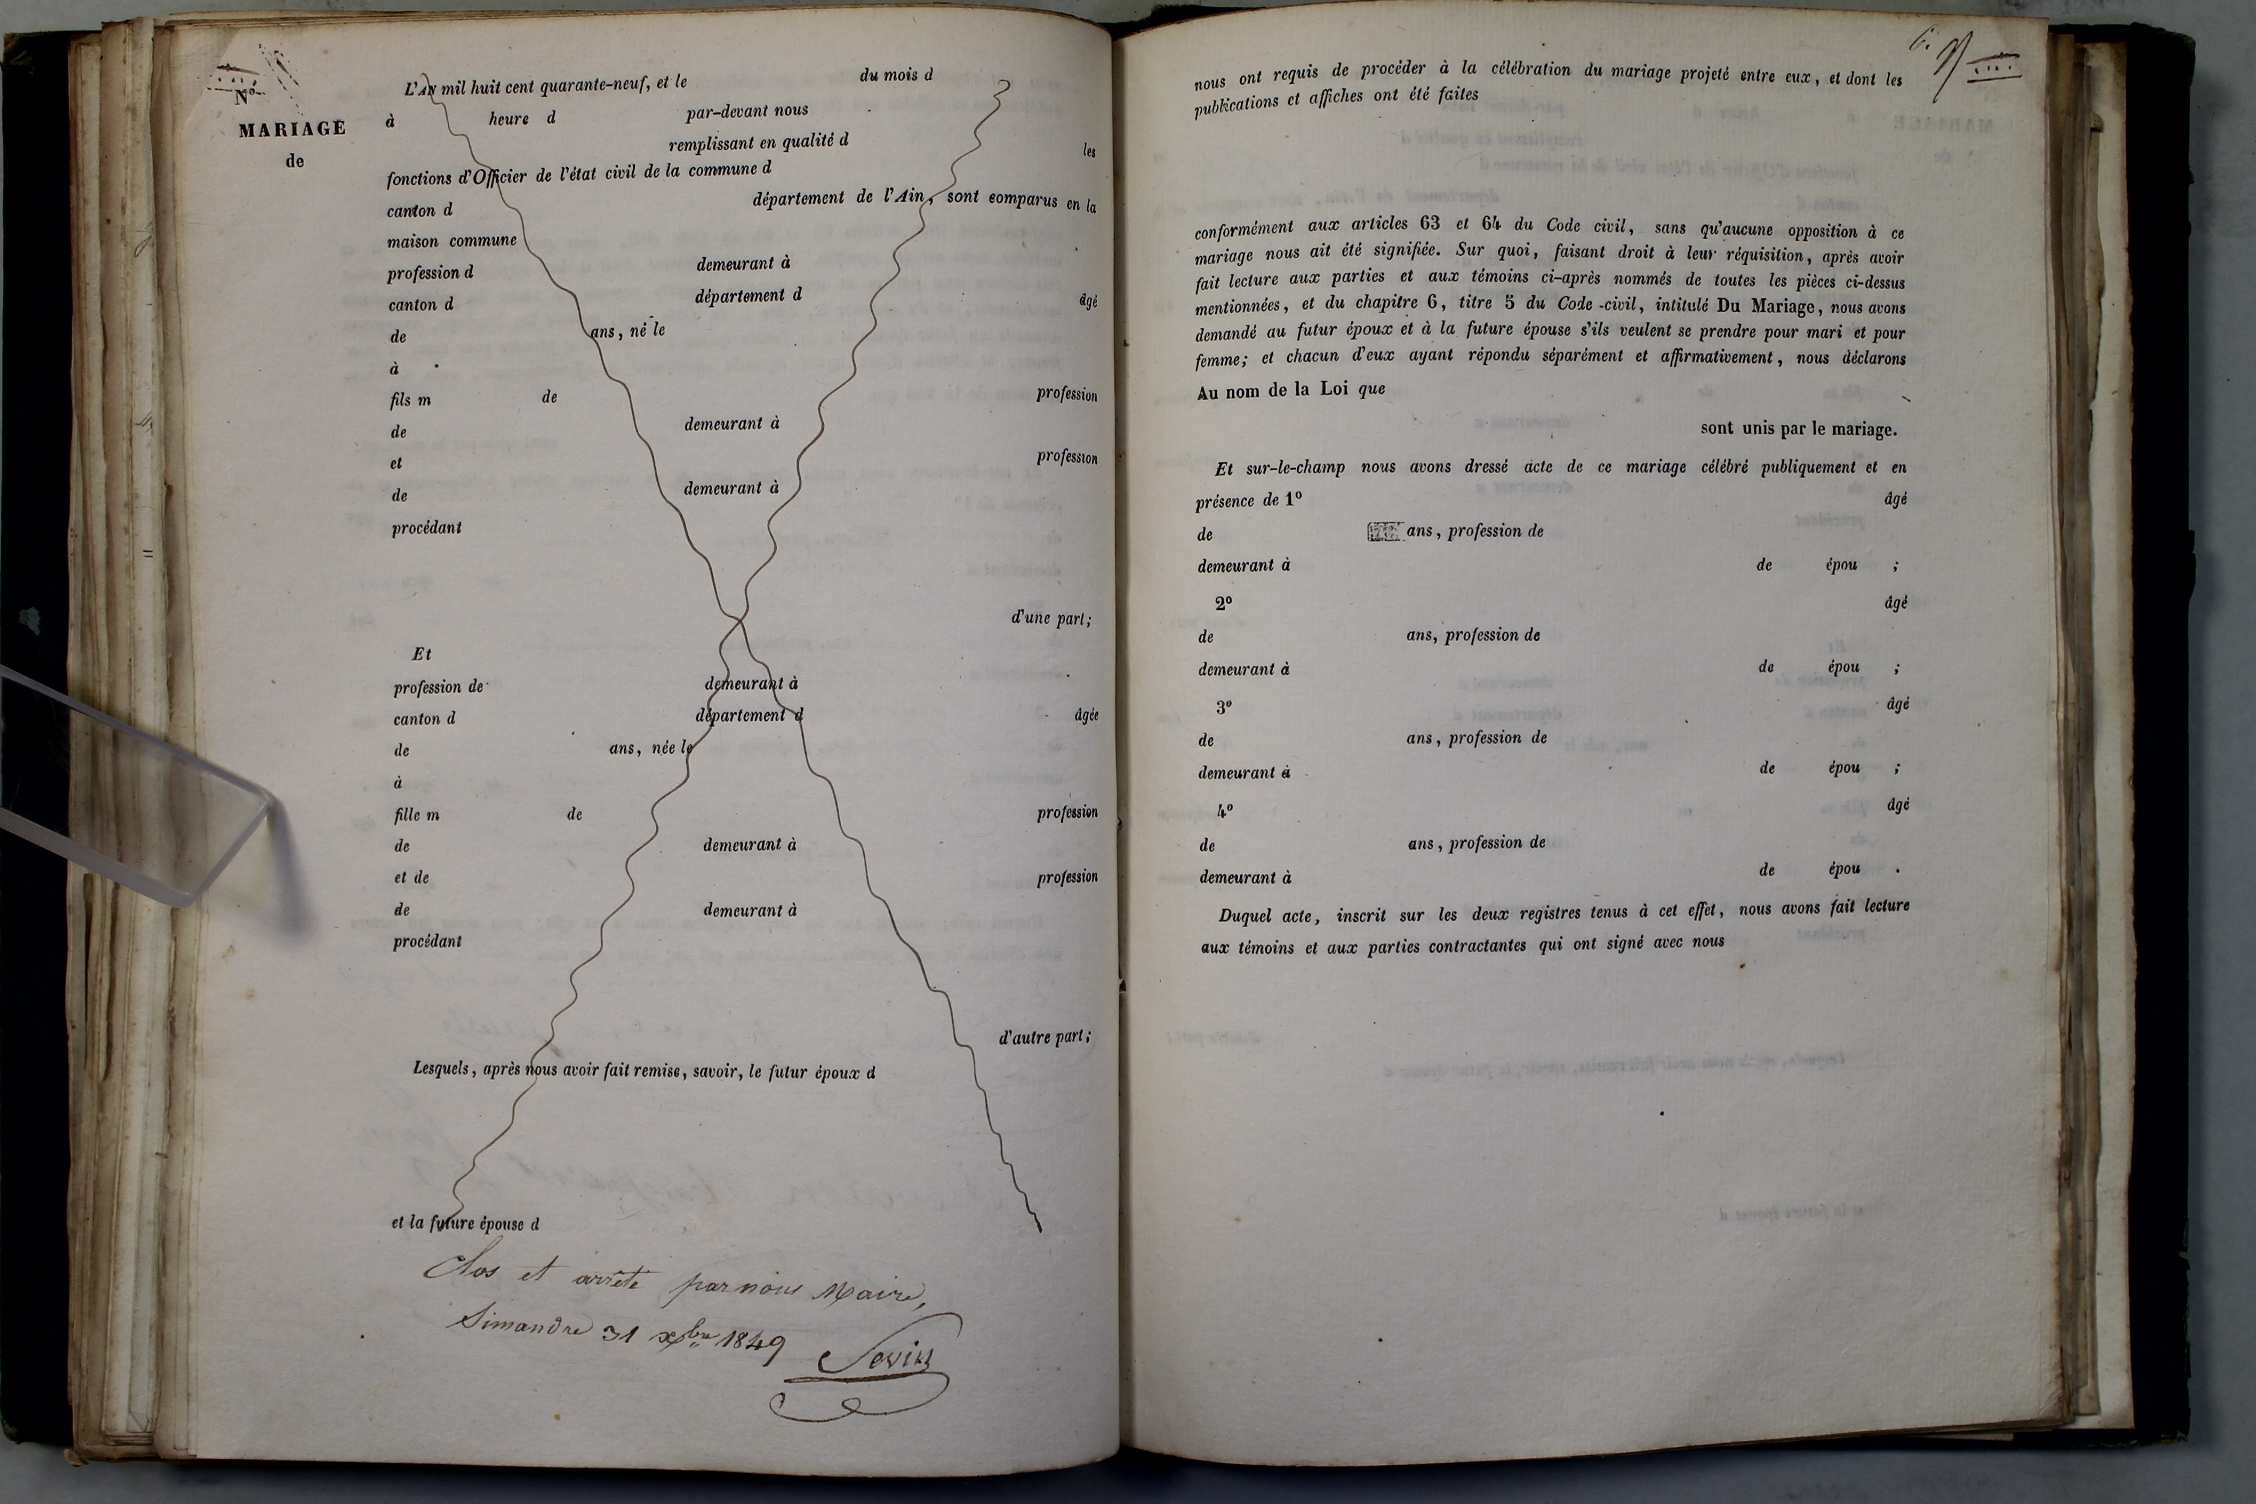 N°
MARIAGE
de
L'AN mil huit cent quarante-neuf, et le du mois d
à heure d par-devant nous
remplissant en qualité d les
fonctions d'Officier de l'état civil de la commune d
canton d département de l'Ain, sont comparus en la
maison commune
profession d demeurant à
canton d département d âgé
de ans, né le
à
fils m de profession
de demeurant à
et profession
de demeurant à
procédant
d'une part;
Et
profession de demeurant à
canton d département d âgée
de ans, née le
à
fille m de profession
de demeurant à
et de profession
de demeurant à
procédant
d'autre part;
Lesquels, après nous avoir fait remise, savoir, le futur époux d
et la future épouse d
Clos et arrêté par nous Maire,
Simandre 31 xbre 1849
6.
nous ont requis de procéder à la célébration du mariage projeté entre eux, et dont les
publications et affiches ont été faites
conformément aux articles 63 et 64 du Code civil, sans qu'aucune opposition à ce
mariage nous ait été signifiée. Sur quoi, faisant droit à leur réquisition, après avoir
fait lecture aux parties et aux témoins ci-après nommés de toutes les pièces ci-dessus
mentionnées, et du chapitre 6, titre 5 du Code-civil, intitulé Du Mariage, nous avons
demandé au futur époux et à la future épouse s'ils veulent se prendre pour mari et pour
femme; et chacun d'eux ayant répondu séparément et affirmativement, nous déclarons
Au nom de la Loi que
sont unis par le mariage.
Et sur-le-champ nous avons dressé acte de ce mariage célébré publiquement et en
présence de 1° âgé
de ans, profession de
demeurant à de épou ;
2° âgé
de ans, profession de
demeurant à de épou ;
3° âgé
de ans, profession de
demeurant à de épou ;
4° âgé
de ans, profession de
demeurant à de épou .
Duquel acte, inscrit sur les deux registres tenus à cet effet, nous avons fait lecture
aux témoins et aux parties contractantes qui ont signé avec nous